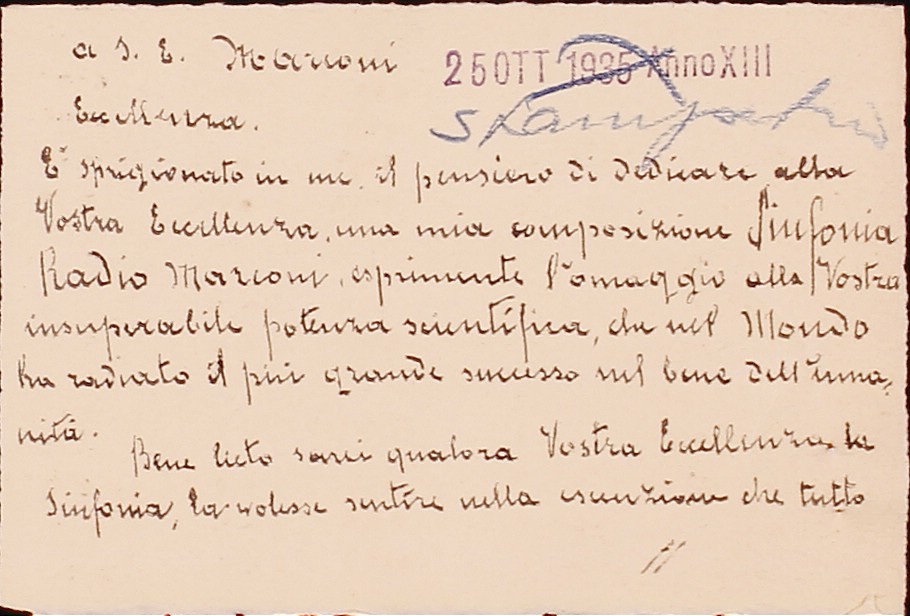 a S. E. Marconi
25 OTT 1935 Anno XIII
Eccellenza.
E' sprigionato in me, il pensiero di dedicare alla
Vostra Eccellenza, una mia composizione Sinfonia
Radio Marconi, esprimente l'omaggio alla Vostra
insuperabile potenza scientifica, che nel Mondo
ha radiato il più grande successo nel bene dell'uma,
nità.
Bene lieto sarei qualora Vostra Eccellenza la
Sinfonia, la volesse sentire nella esecuzione che tutto